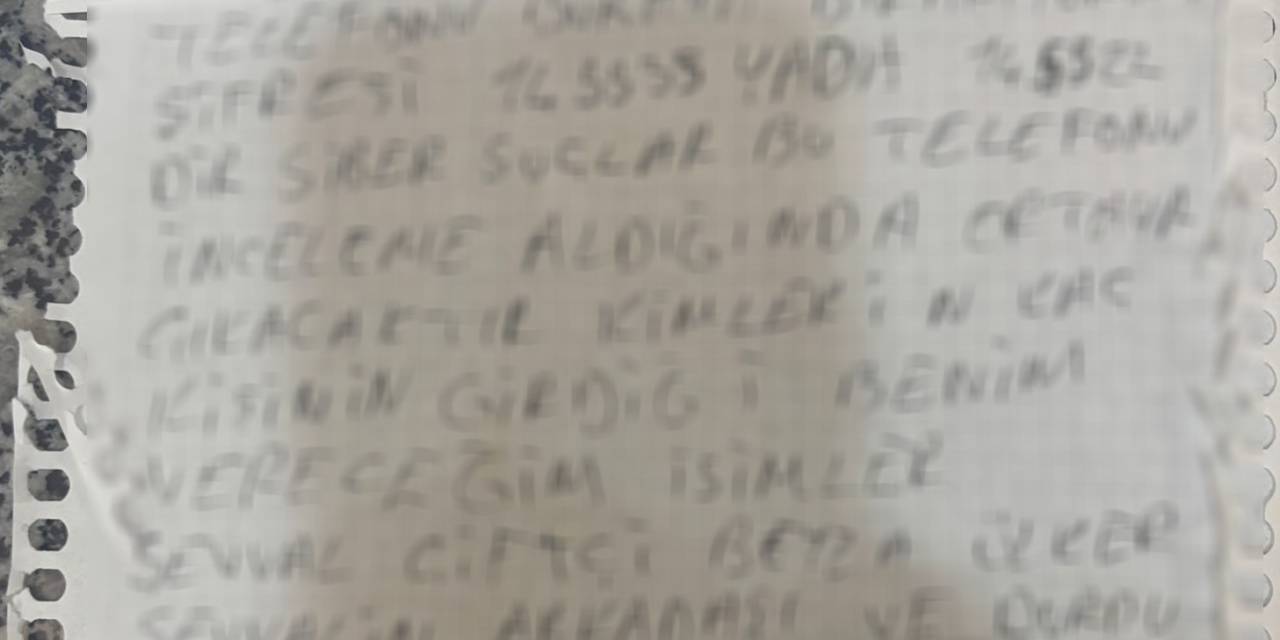 TELEFONU
ŞİFRESİ 145555 YADA 145522
DİR SİBER SUÇLAR BU TELEFONU
İNCELEME ALDIĞINDA ORTAYA
ÇIKACAKTIR KİMLERİN KAÇ
KİŞİNİN GİRDİĞİ BENİM
VERECEĞİM İSİMLER
ŞEVVAL ÇİFTÇİ İLKER
ŞEVVALİN ARKADAŞI VE